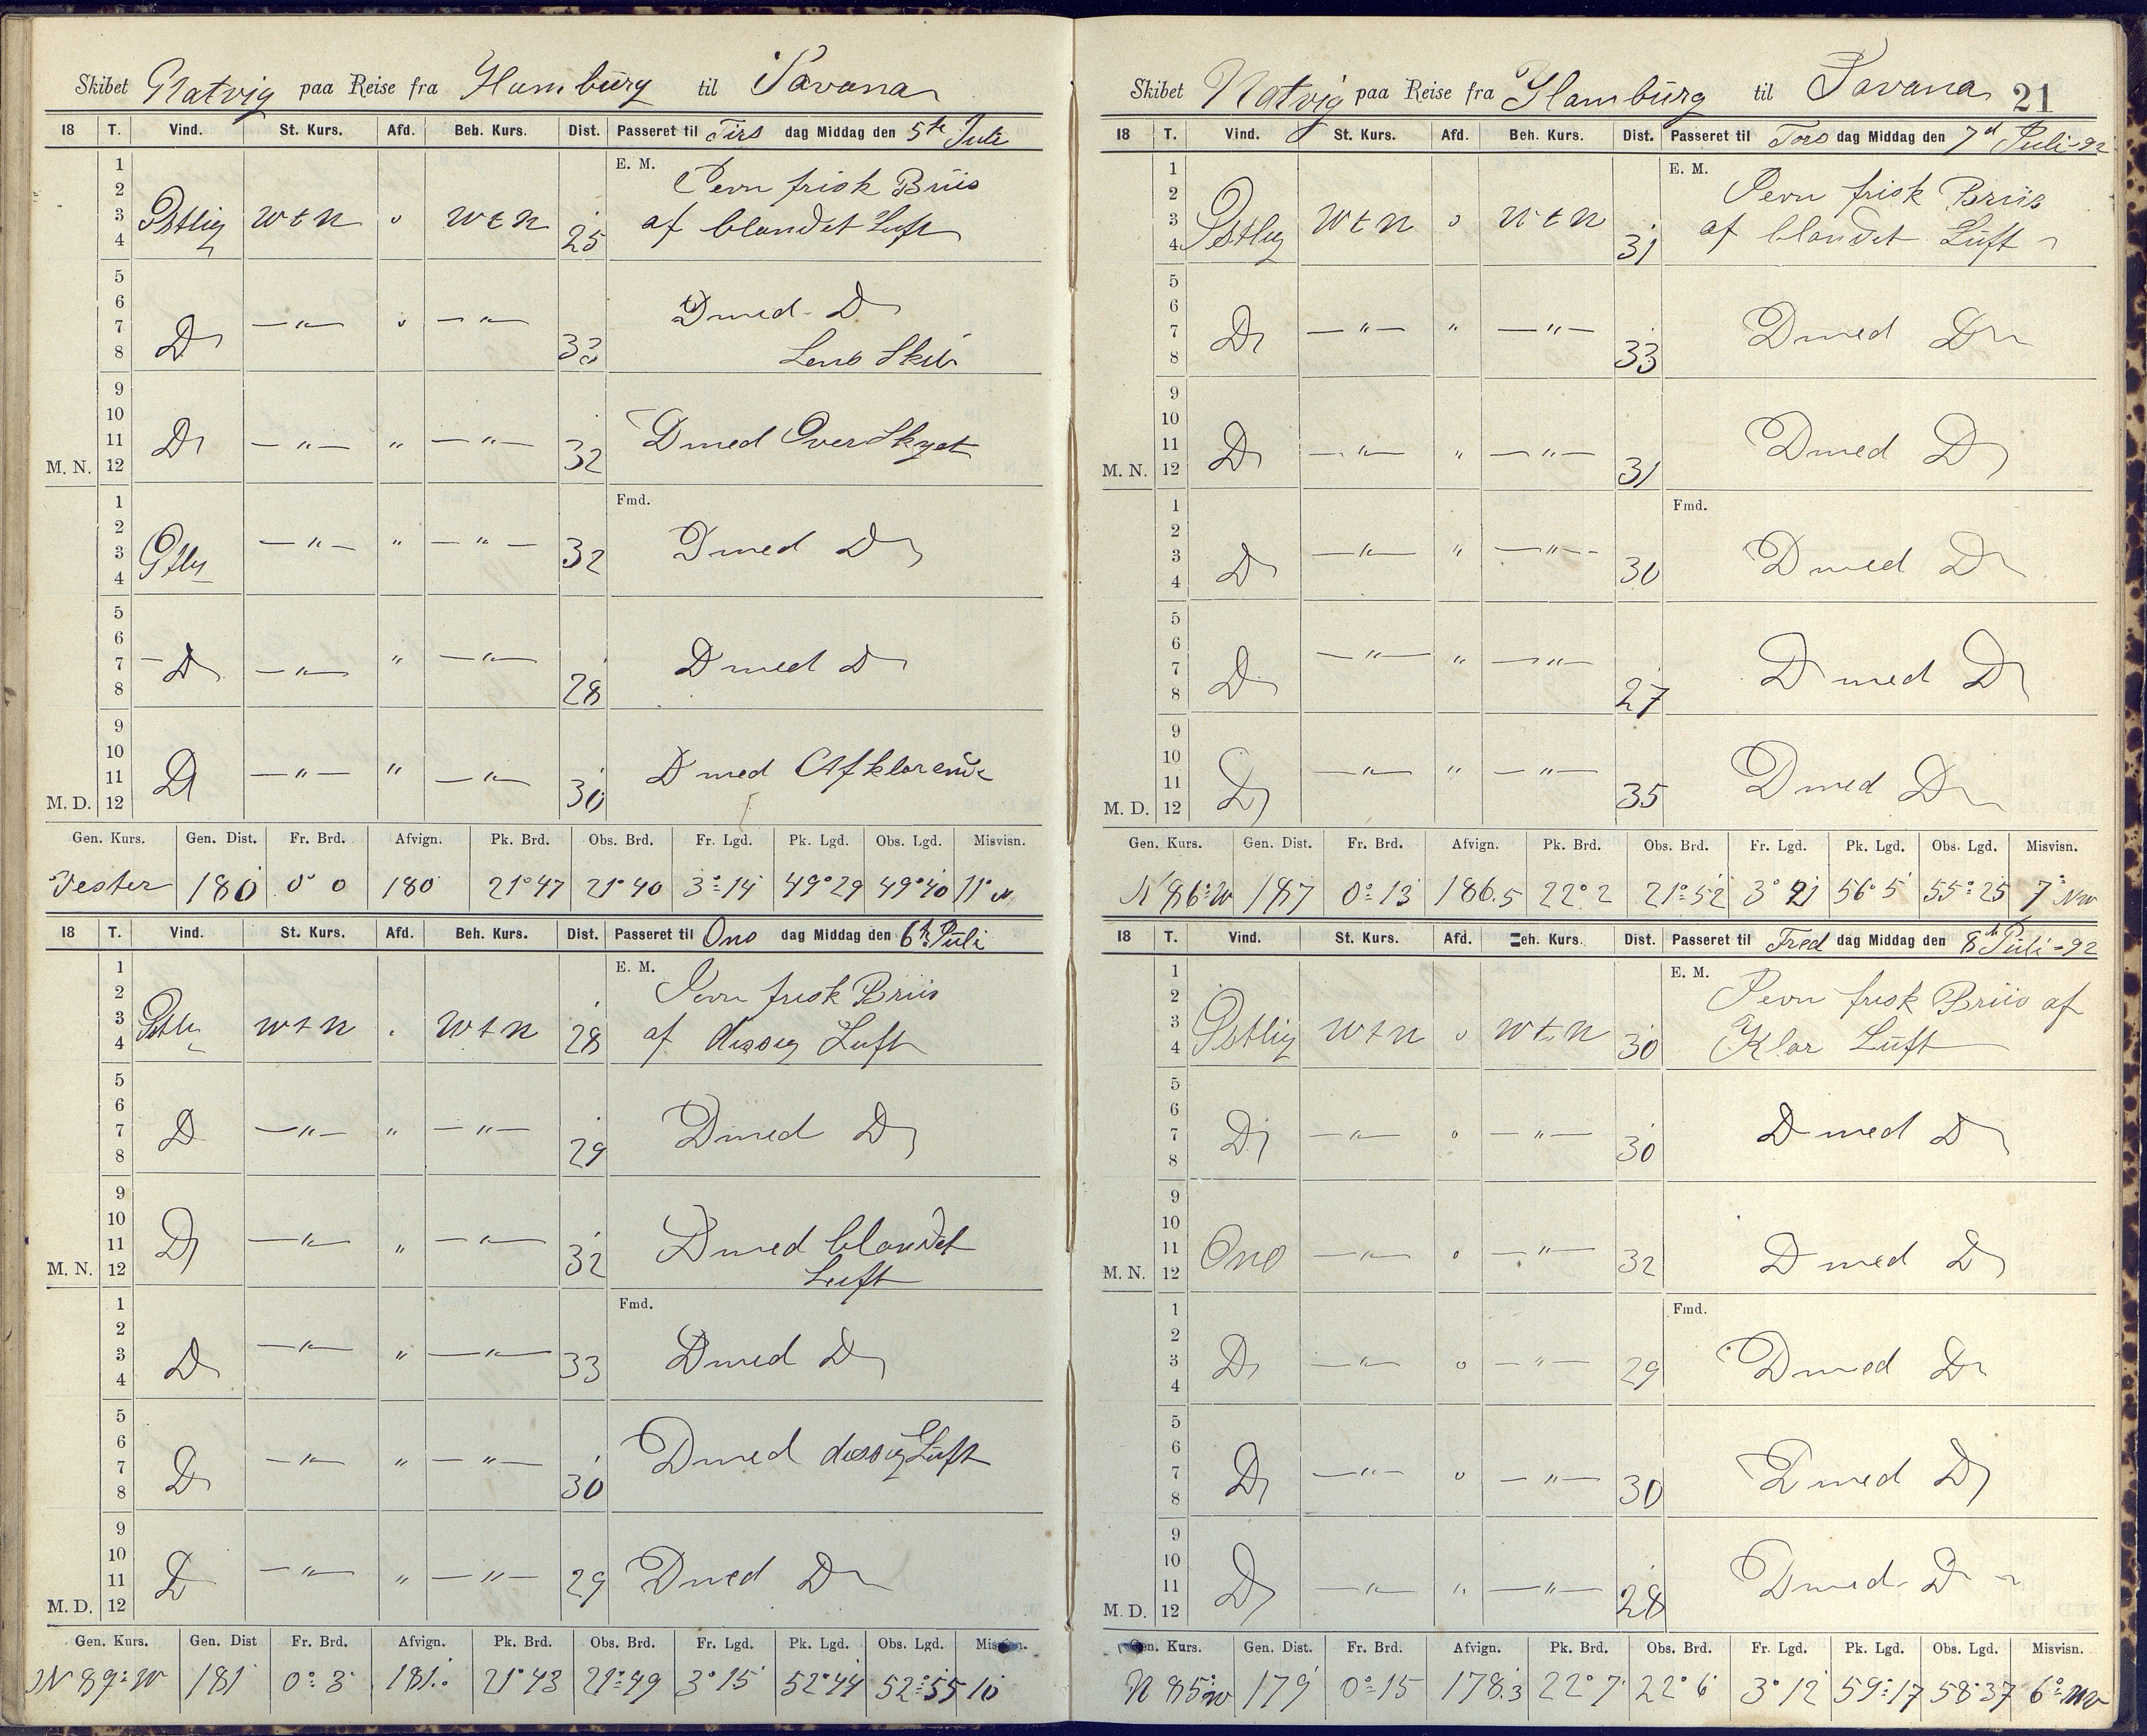 Skibet Natvig paa Reise fra Hamburg til Savana
18 T. Vind. St. Kurs. Afd. Beh. Kurs. Dist. Passeret til Tirs dag Middag den 5te Juli
E. M.
1
2 Jevn frisk Briis
3 Östlig W t N 0 W t N 25 af blandet Luft
4
5
6 D med D
7 D — " — 0 — " — 33
8 Lens Skib
9
10
11 D — " — " — " — 32 D med Overskyet
M. N. 12
1 Fmd.
2
3 Östlig — " — " — " — 32 D med D
4
5
6
7 D — " — " — " — 28 D med D
8
9
10
11 D — " — " — " — 30 D med Afklarende
M. D. 12
Gen. Kurs. Gen. Dist. Fr. Brd. Afvign. Pk. Brd. Obs. Brd. Fr. Lgd. Pk. Lgd. Obs. Lgd. Misvisn.
Vester 180 0° 0 180 21° 47 21° 40 3° 14 49° 29 49° 40 11° W
18 T. Vind. St. Kurs. Afd. Beh. Kurs. Dist. Passeret til Ons dag Middag den 6te Juli
1 E. M.
2 Jevn frisk Briis
3 Östlig W t N W t N 28 af dissig Luft
4
5
6
7 D — " — " — " — 29 D med D
8
9
10
11 D — " — " — " — 32 D med blandet
M. N. 12 Luft
1 Fmd.
2
3 D — " — " — " — 33 D med D
4
5
6
7 D — " — " — " — 30 D med dissig Luft
8
9
10
11 D — " — " — " — 29 D med D
M. D. 12
Gen. Kurs. Gen. Dist Fr. Brd. Afvign. Pk. Brd. Obs. Brd. Fr. Lgd. Pk. Lgd. Obs. Lgd. Misvisn.
N 89° W 181 0° 3 181.0 21° 43 21° 49 3° 15 52° 44 52° 55 10
Skibet Natvig paa Reise fra Hamburg til Savana 21
18 T. Vind. St. Kurs. Afd. Beh. Kurs. Dist. Passeret til Tors dag Middag den 7d Juli-92
1 E. M.
2 Jevn frisk Briis
3 Östlig W t N 0 W t N 31 af blandet Luft
4
5
6
7 D — " — " — " — 33 D med D
8
9
10
11 D — " — " — " — 31 D med D
M. N. 12
1 Fmd.
2
3 D — " — " — " — 30 D med D
4
5
6
7 D — " — " — " — 27 D med D
8
9
10
11 D — " — " — " — 35 D med D
M. D. 12
Gen. Kurs. Gen. Dist. Fr. Brd. Afvign. Pk. Brd. Obs. Brd. Fr. Lgd. Pk. Lgd. Obs. Lgd. Misvisn.
N 86° W 187 0° 13 186.5 22° 2 21° 52 3° 21 56° 5 55° 25 7° NW
18 T. Vind. St. Kurs. Afd. Beh. Kurs. Dist. Passeret til Fred dag Middag den 8de Juli-92
1 E. M.
2 Jevn frisk Briis af
3 Östlig W t N 0 W t N 30 Klar Luft
4
5
6
7 D — " — 0 — " — 30 D med D
8
9
10
11 Ono — " — 0 — " — 32 D med D
M. N. 12
1 Fmd.
2
3 D — " — 0 — " — 29 D med D
4
5
6
7 D — " — 0 — " — 30 D med D
8
9
10
11 D — " — " — " — 28 D med D
M. D. 12
Gen. Kurs. Gen. Dist. Fr. Brd. Afvign. Pk. Brd. Obs. Brd. Fr. Lgd. Pk. Lgd. Obs. Lgd. Misvisn.
N 85° W 179 0° 15 178.3 22° 7 22° 6 3° 12 59° 17 58° 37 6° NW